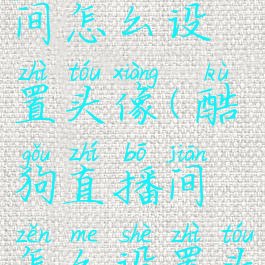 间怎么设
zhì tóu xiàng kù
置头像(酷
gǒu zhí bō jiān
狗直播间
zěn me shè zhì tóu
怎么设置头